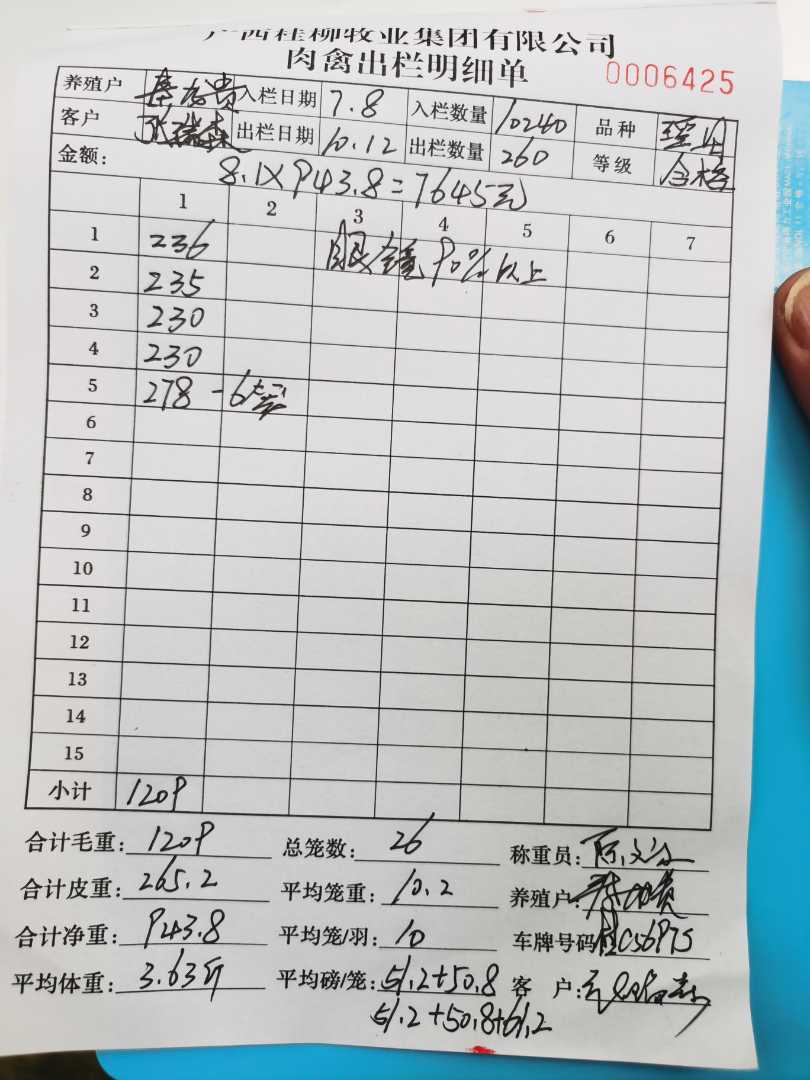 广西桂柳牧业集团有限公司
肉禽出栏明细单 0006425
养殖户 入栏日期 7.8 入栏数量 10240 品种
客户 张瑞森 出栏日期 10.12 出栏数量 260 等级 合格
金额: 8.1×943.8=7645元
1 2 3 4 5 6 7
1 236 90%以上
2 235
3 230
4 230
5 278 -6
6
7
8
9
10
11
12
13
14
15
小计 1209
合计毛重: 1209 总笼数: 26 称重员:
合计皮重: 265.2 平均笼重: 10.2 养殖户:
合计净重: 943.8 平均笼/羽: 10 车牌号码 桂C56975
平均体重: 3.63斤 平均磅/笼: 51.2+50.8 客户:
51.2+50.8+61.2